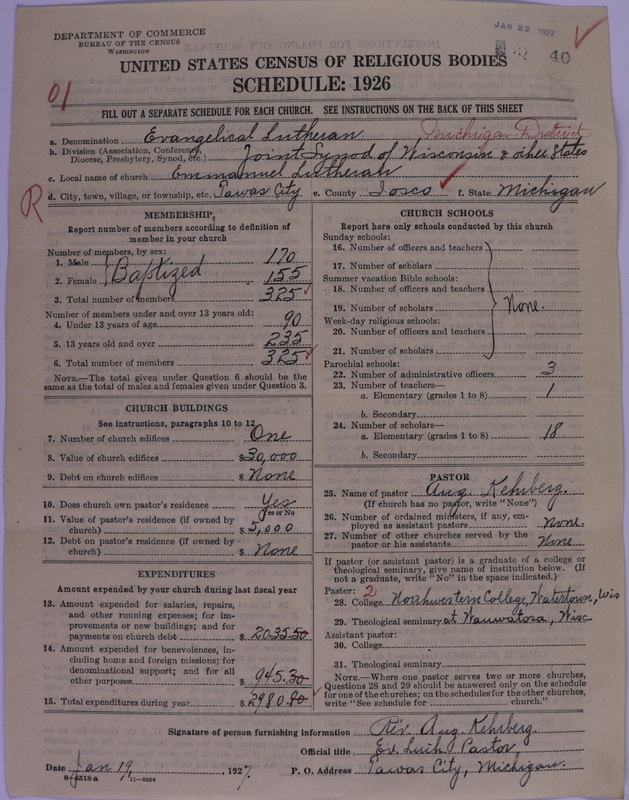 DEPARTMENT OF COMMERCE
BUREAU OF THE CENSUS
WASHINGTON
JAN 22 1927
40
UNITED STATES CENSUS OF RELIGIOUS BODIES
SCHEDULE: 1926
01
FILL OUT A SEPARATE SCHEDULE FOR EACH CHURCH. SEE INSTRUCTIONS ON THE BACK OF THIS SHEET
a. Denomination Evangelical Lutheran Michigan District
b. Division (Association, Conference, Diocese, Presbytery, Synod, etc.) Joint Synod of Wisconsin & other States
c. Local name of church Emmanuel Lutheran
R
d. City, town, village, or township, etc. Tawas City e. County Iosco f. State Michigan
MEMBERSHIP
Report number of members according to definition of
member in your church
Number of members, by sex:
1. Male 170
Baptized
2. Female 155
3. Total number of members 325
Number of members under and over 13 years old:
4. Under 13 years of age 90
5. 13 years old and over 235
6. Total number of members 325
NOTE.—The total given under Question 6 should be
same as the total of males and females given under Question 3.
CHURCH BUILDINGS
See instructions, paragraphs 10 to 12
7. Number of church edifices One
8. Value of church edifices $30,000
9. Debt on church edifices $ None
10. Does church own pastor's residence Yes
Yes or No
11. Value of pastor's residence (if owned by
church) $ 5,000
12. Debt on pastor's residence (if owned by
church) $ None
EXPENDITURES
Amount expended by your church during last fiscal year
13. Amount expended for salaries, repairs,
and other running expenses; for im-
provements or new buildings; and for
payments on church debt $ 2035.50
14. Amount expended for benevolences, in-
cluding home and foreign missions; for
denominational support; and for all
other purposes $ 945.30
15. Total expenditures during year $ 2980.80
CHURCH SCHOOLS
Report here only schools conducted by this church
Sunday schools:
16. Number of officers and teachers
17. Number of scholars
Summer vacation Bible schools:
18. Number of officers and teachers
19. Number of scholars None.
Week-day religious schools:
20. Number of officers and teachers
21. Number of scholars
Parochial schools:
22. Number of administrative officers 3
23. Number of teachers—
a. Elementary (grades 1 to 8) 1
b. Secondary
24. Number of scholars—
a. Elementary (grades 1 to 8) 18
b. Secondary
PASTOR
25. Name of pastor Aug. Kehrberg.
(If church has no pastor, write "None")
26. Number of ordained ministers, if any, em-
ployed as assistant pastors None.
27. Number of other churches served by the
pastor or his assistants None
If pastor (or assistant pastor) is a graduate of a college or
theological seminary, give name of institution below. (If
not a graduate, write "No" in the space indicated.)
Pastor: 2
28. College Northwestern College, Watertown, Wis
29. Theological seminary at Wauwatosa, Wisc
Assistant pastor:
30. College
31. Theological seminary
NOTE.—Where one pastor serves two or more churches,
Questions 28 and 29 should be answered only on the schedule
for one of the churches; on the schedules for the other churches,
write "See schedule for church."
Signature of person furnishing information Rev. Aug. Kehrberg.
Official title Ev. Luth. Pastor
Date Jan 19, 1927 P. O. Address Tawas City, Michigan.
11—9054